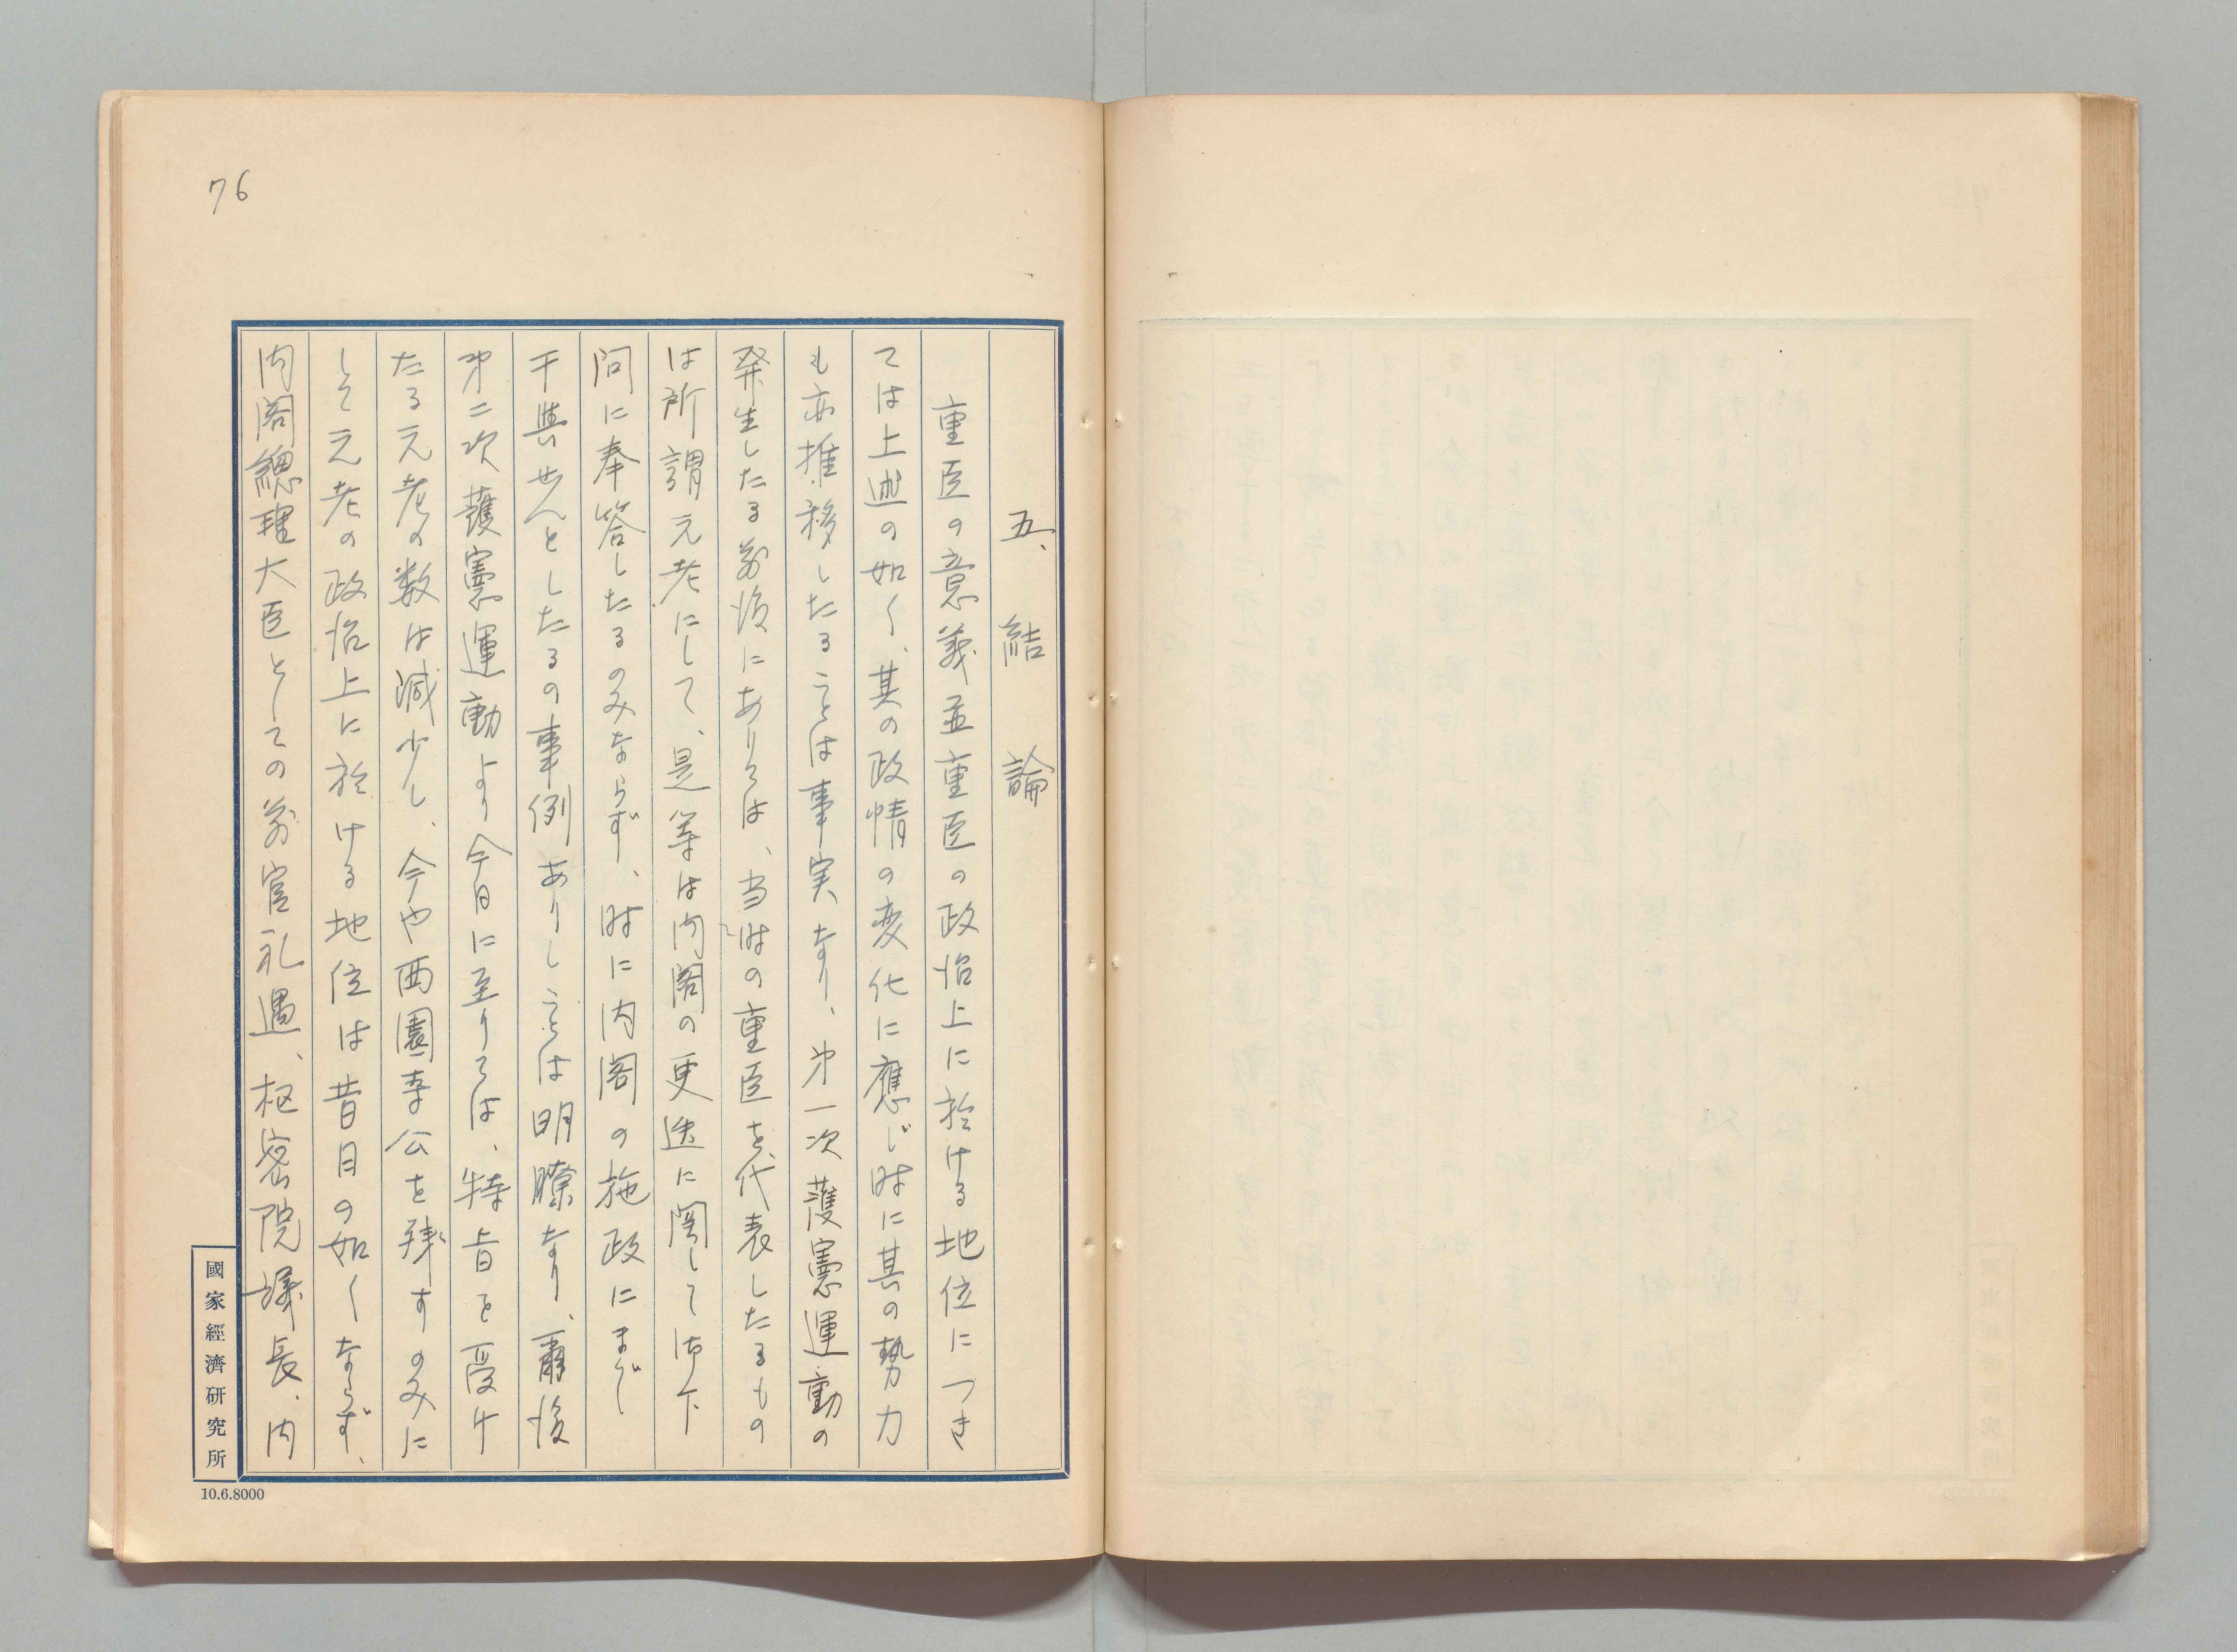 76
五、結論
重臣の意義並重臣の政治上に於ける地位につき
ては上述の如く、其の政情の変化に應じ時に其の勢力
も亦推移したることは事実なり、第一次護憲運動の
発生したる前後にありては、当時の重臣を代表したるもの
は所謂元老にして、是等は内閣の更迭に関して御下
問に奉答したるのみならず、時に内閣の施政にまで
干與せんとしたるの事例ありしことは明瞭なり、爾後
第二次護憲運動より今日に至りては、特旨を受け
たる元老の数は減少し、今や西園寺公を残すのみに
して元老の政治上に於ける地位は昔日の如くならず、
内閣總理大臣としての前官礼遇、枢密院議長、内
國家經濟研究所
10.6.8000